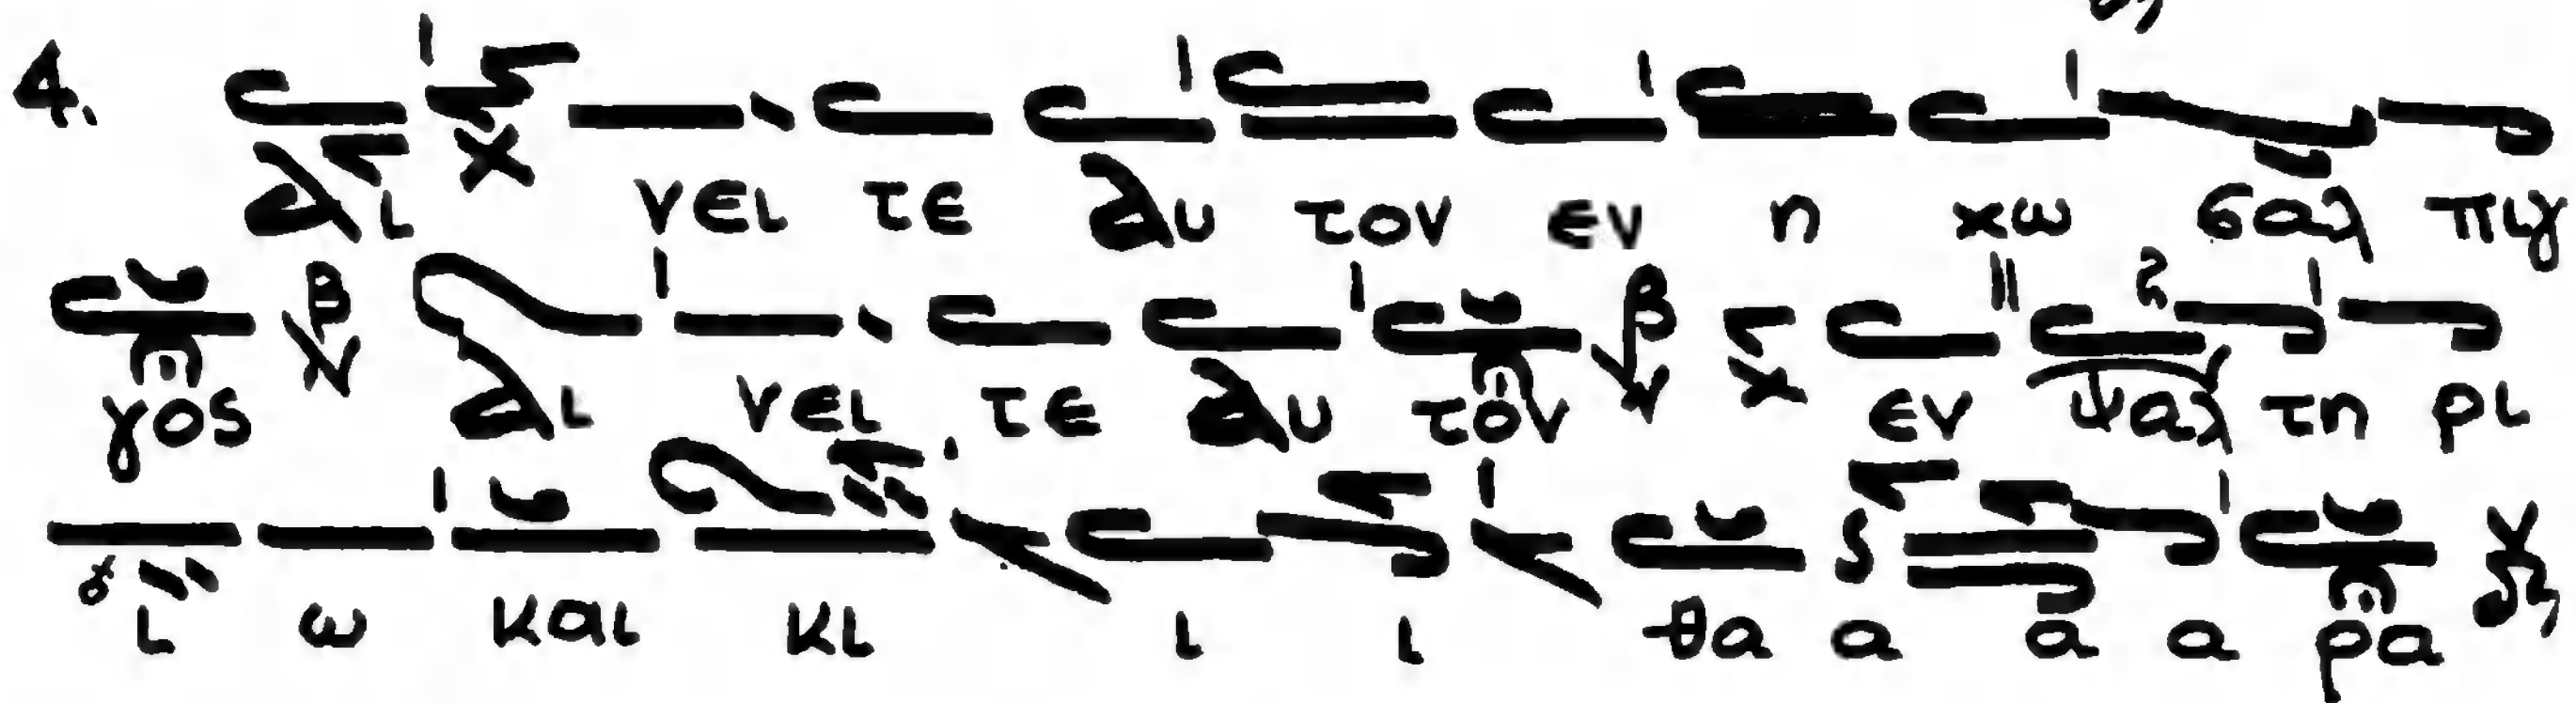 4. αι νει τε αυ τον εν η χω σαλ πιγ
γος αι νει τε αυ τον εν ψαλ τη ρι
ι ω και κι ι ι θα α α α ρα